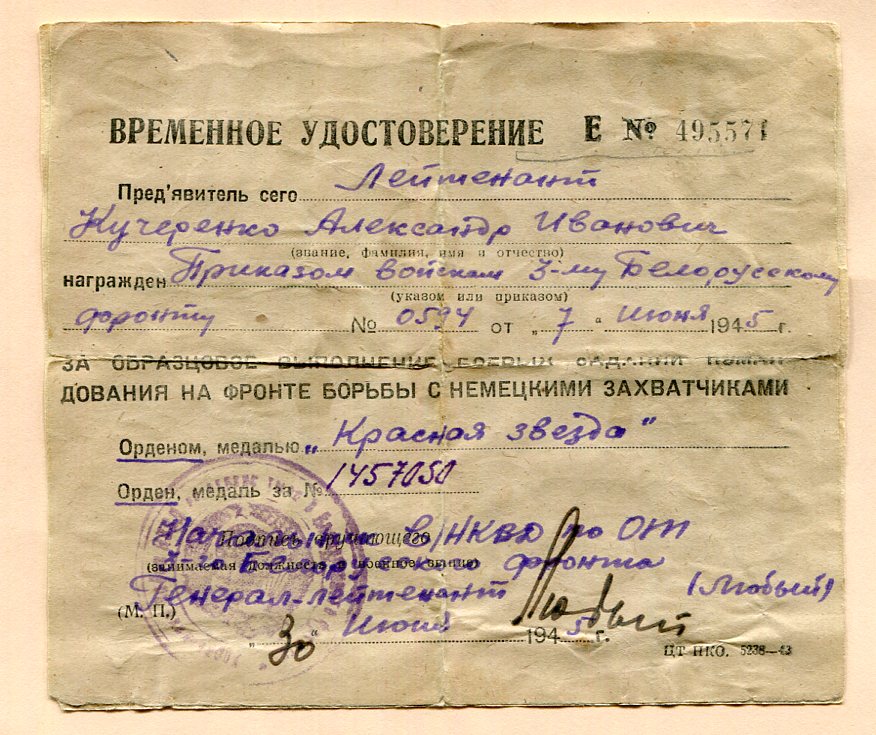 ВРЕМЕННОЕ УДОСТОВЕРЕНИЕ Е № 495571
Пред'явитель сего Лейтенант
Кучеренко Александр Иванович
(звание, фамилия, имя и отчество)
награжден Приказом войскам 3-му Белорусскому
(указом или приказом)
фронту № 0594 от „7“ Июня 1945 г.
ЗА ОБРАЗЦОВОЕ ВЫПОЛНЕНИЕ БОЕВЫХ ЗАДАНИЙ КОМАН
ДОВАНИЯ НА ФРОНТЕ БОРЬБЫ С НЕМЕЦКИМИ ЗАХВАТЧИКАМИ
Орденом, медалью „Красная звезда"
Орден, медаль за № 1457050
Подпись вручающего
В/НКВД по ОТ
3-го Белорусского фронта
(занимаемая должность и военное звание)
Генерал-лейтенант (Любый)
(М. П.)
„30“ Июня 1945 г.
ЦТ НКО. 5238—43